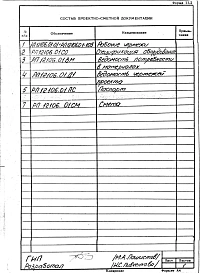 Форма 21.2
СОСТАВ ПРОЕКТНО-СМЕТНОЙ ДОКУМЕНТАЦИИ
Обозначение Наименование Приме-
чание
1 Рабочие чертежи
2 РП 12106.01.СО Спецификация оборудования
3 РП 12106.01.ВМ Ведомость потребности
в материалах
4 РП 12106.01.Д1 Ведомость чертежей
проекта
5 РП 12106.01.ПС Паспорт
7 РП 12106.01.СМ Смета
ГИП
Разработал
Лист Листов
1
Копировал Формат А4